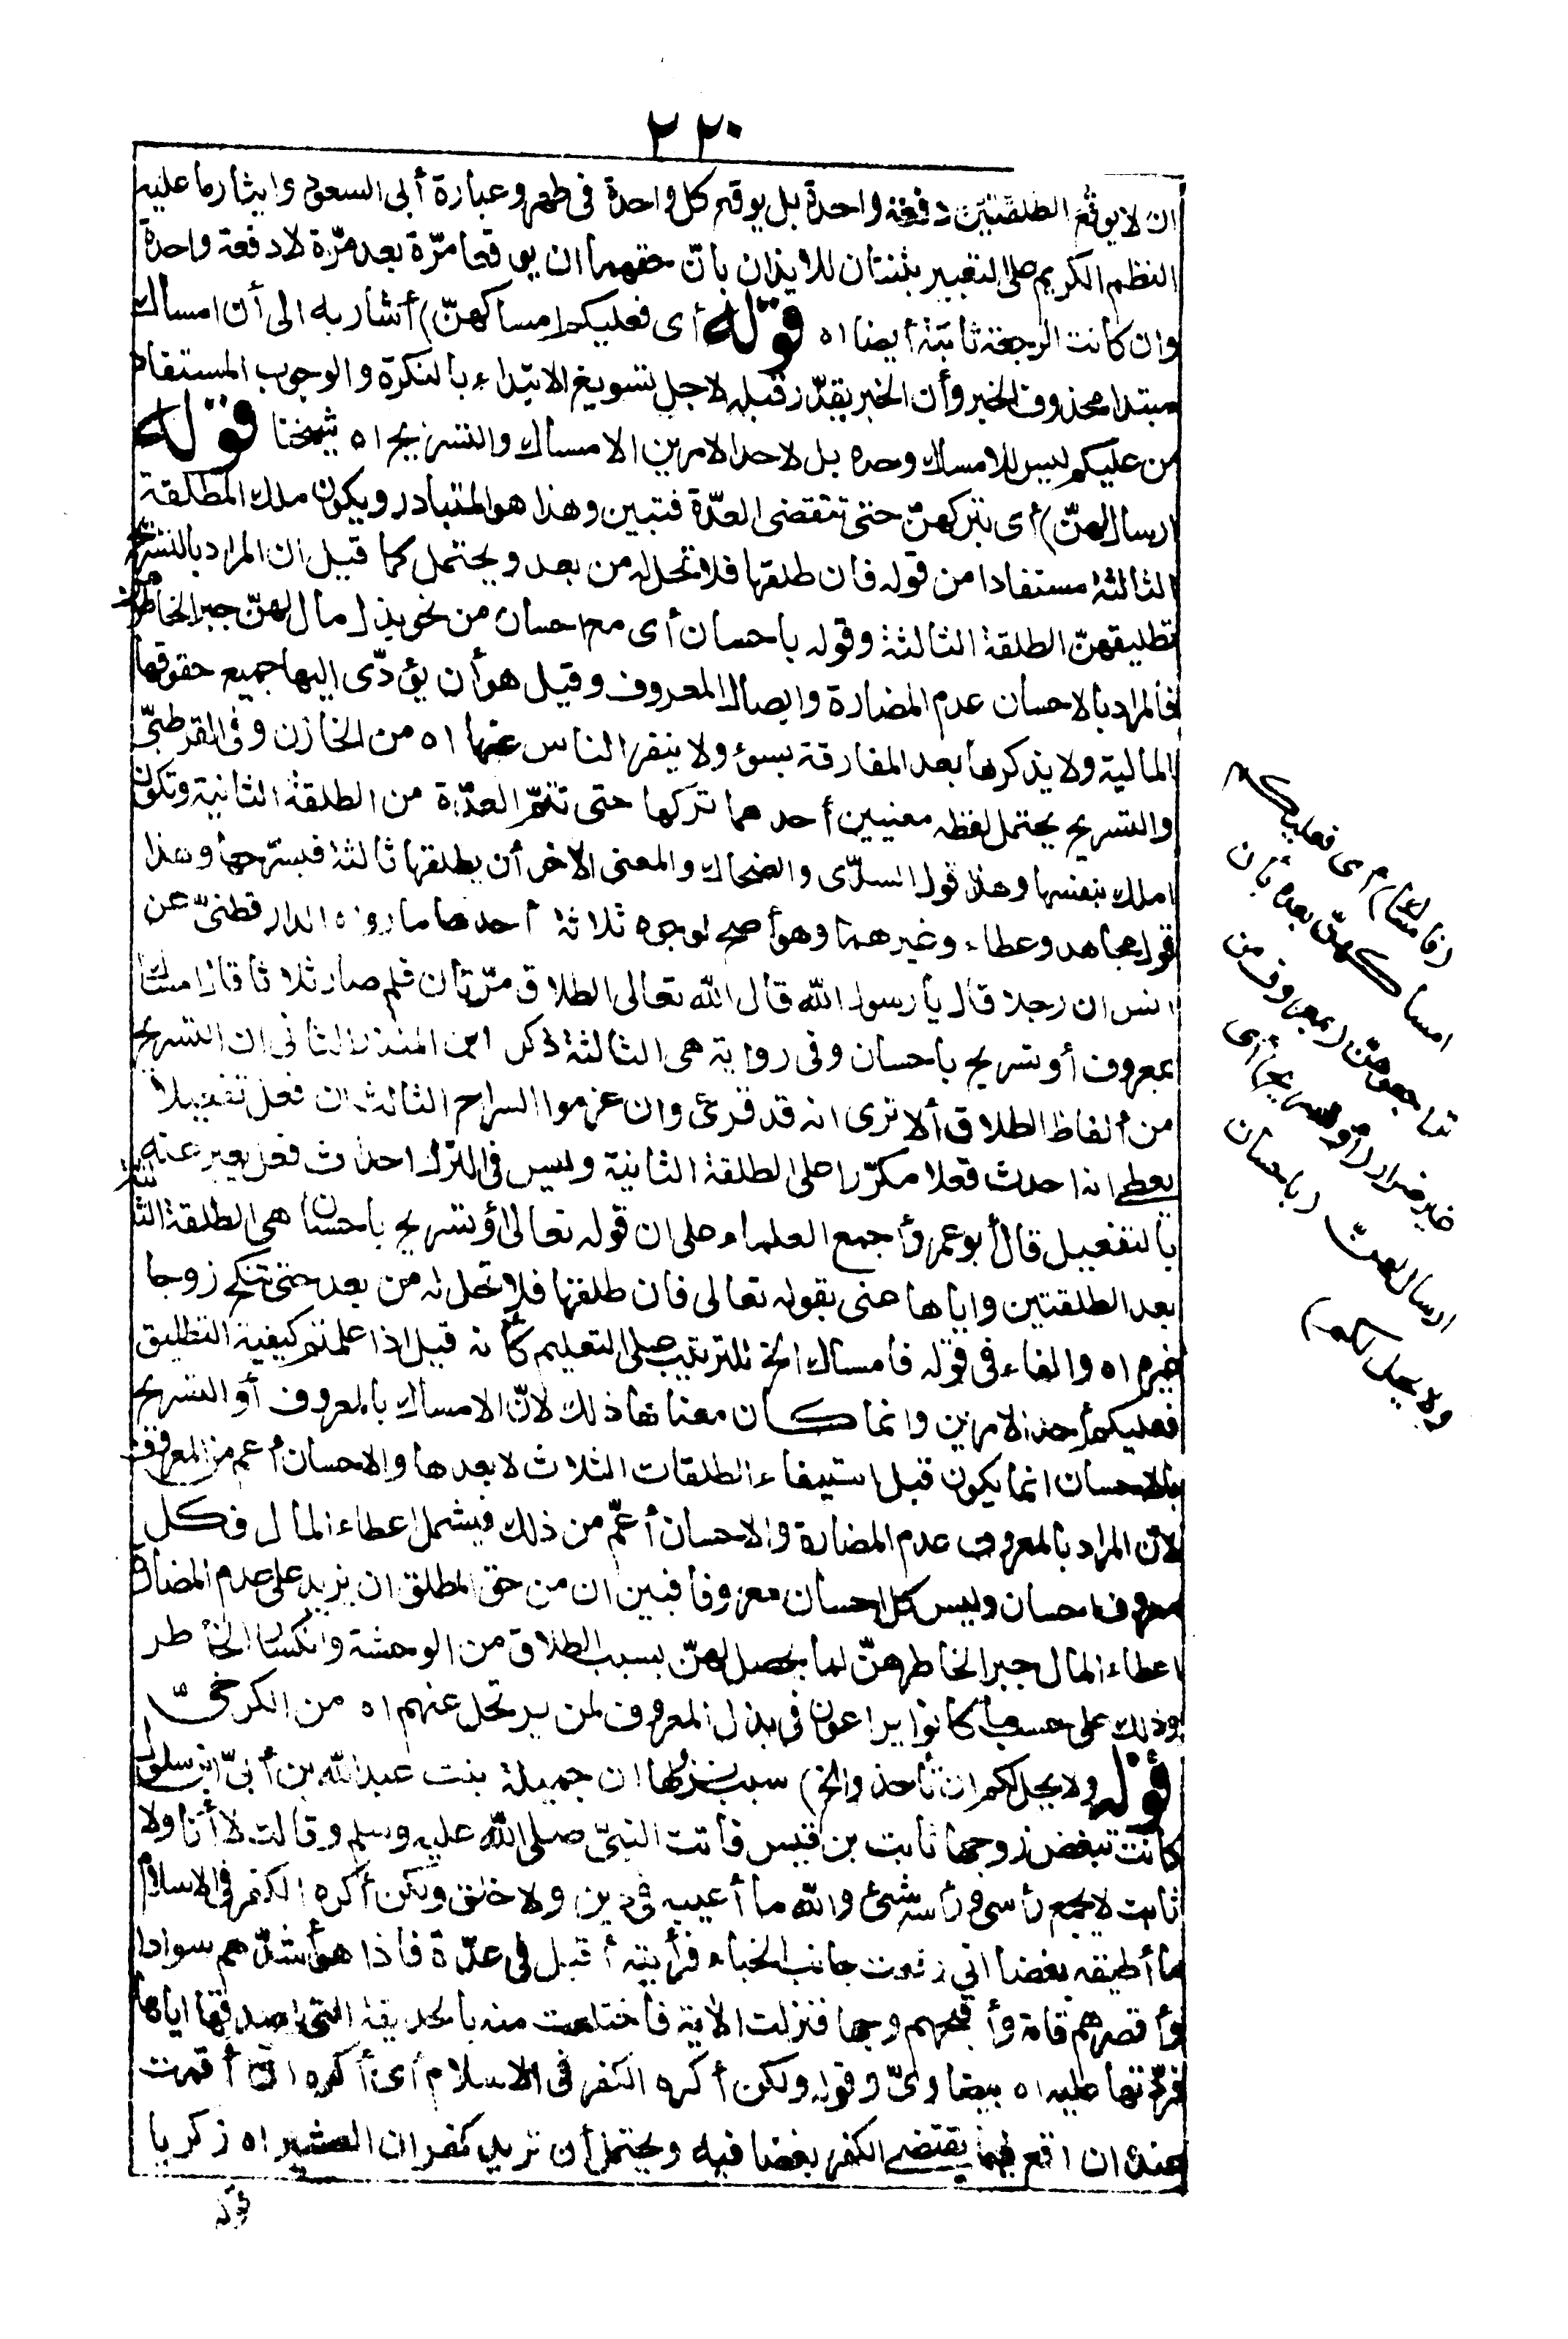 ٢٢٠
ان لا يوقع الطلقتين دفعة واحدة بل يوقع كل واحدة فى طهر وعبارة أبى السعود وايثار ما عليه
النظم الكريم على التعبير بثنتان للايذان بانّ حقهما ان يوقعا مرّة بعد مرّة لا دفعة واحدة
وان كانت الرجعة ثابتة أيضا اه قوله أى فعليكم امساكهنّ) أشار به الى أن امساك
مبتدا محذوف الخبر وأن الخبر يقدّر قبله لاجل تسويغ الابتداء بالنكرة والوجوب المستفاد
من عليكم ليس للامساك وحده بل لاحد الامرين الامساك والتسريح اه شيخنا قوله
ارسالهنّ) أى بتركهنّ حتى تنقضى العدّة فتبين وهذا هو المتبادر ويكون ملك المطلقة
الثالثة مستفادا من قوله فان طلقها فلا تحل له من بعد ويحتمل كما قيل ان المراد بالتسريح
تطليقهنّ الطلقة الثالثة وقوله باحسان أى مع احسان من نحو بذل مال لهنّ جبرا لخاطرهنّ
فالمراد بالاحسان عدم المضارة وايصال المعروف وقيل هو أن يؤدّى اليها جميع حقوقها
المالية ولا يذكرها بعد المفارقة بسوء ولا ينفر الناس عنها اه من الخازن وفى القرطبىّ
والتسريح يحتمل لفظه معنيين أحدهما تركها حتى تتمّ العدّة من الطلقة الثانية وتكون
املك بنفسها وهذا قول السدّى والضحاك والمعنى الآخر أن يطلقها ثالثة فيسرّحها وهذا
قول مجاهد وعطاء وغيرهما وهو أصح لوجوه ثلاثة أحدها ما رواه الدارقطنىّ عن
انس ان رجلا قال يا رسول الله قال الله تعالى الطلاق مرّتان فلم صار ثلاثا قال امساك
بمعروف أو تسريح باحسان وفى رواية هى الثالثة ذكر ابن المنذر الثانى ان التسريح
من ألفاظ الطلاق ألا ترى انه قد قرئ وان عزموا السراح الثالث ان فعل تفعيلا
يعطى انه احدث فعلا مكرّرا على الطلقة الثانية وليس فى الترك احداث فعل يعبر عنه
بالتفعيل قال أبو عمر وأجمع العلماء على ان قوله تعالى أو تسريح باحسان هى الطلقة الثالثة
بعد الطلقتين واياها عنى بقوله تعالى فان طلقها فلا تحل له من بعد حتى تنكح زوجا
غيره اه والفاء فى قوله فامساك الخ للترتيب على التعليم كأنه قيل اذا علمتم كيفية التطليق
فعليكم أحد الامرين وانما كان معناها ذلك لانّ الامساك بالمعروف أو التسريح
بالاحسان انما يكون قبل استيفاء الطلقات الثلاث لا بعدها والاحسان أعم من المعروف
لانّ المراد بالمعروف عدم المضارة والاحسان أعمّ من ذلك فيشمل اعطاء المال فكل
معروف احسان وليس كل احسان معروفا فبين ان من حق المطلق ان يزيد على عدم المضارة
اعطاء المال جبرا لخاطرهنّ لما يحصل لهنّ بسبب الطلاق من الوحشة وانكسار الخاطر
وذلك على حسب ما كانوا يراعون فى بذل المعروف لمن يرتحل عنهم اه من الكرخىّ
قوله ولا يحل لكم ان تأخذوا الخ) سبب نزولها ان جميلة بنت عبد الله بن أبىّ ابن سلول
كانت تبغض زوجها ثابت بن قيس فاتت النبىّ صلى الله عليه وسلم وقالت لا أنا ولا
ثابت لا يجمع رأسى ورأسه شئ والله ما أعيبه فى دين ولا خلق ولكن أكره الكفر فى الاسلام
ما أطيقه بغضا انى رفعت جانب الخباء فرأيته أقبل فى عدّة فاذا هو أشدّهم سوادا
وأقصرهم قامة وأقبحهم وجها فنزلت الآية فاختلعت منه بالحديقة التى اصدقها اياها
فردّتها عليه اه بيضاوىّ وقوله ولكن أكره الكفر فى الاسلام أى أكره ان أقمت
عنده ان اقع فيما يقتضى الكفر بغضا فيه ويحتمل أن تريد كفران العشير اه زكريا
قوله
(فامساك) أى فعليكم
امساكهنّ بعده بأن
تراجعوهنّ (بمعروف) من
غير ضرار (أو تسريح) أى
ارسالهنّ (باحسان
ولا يحل لكم)